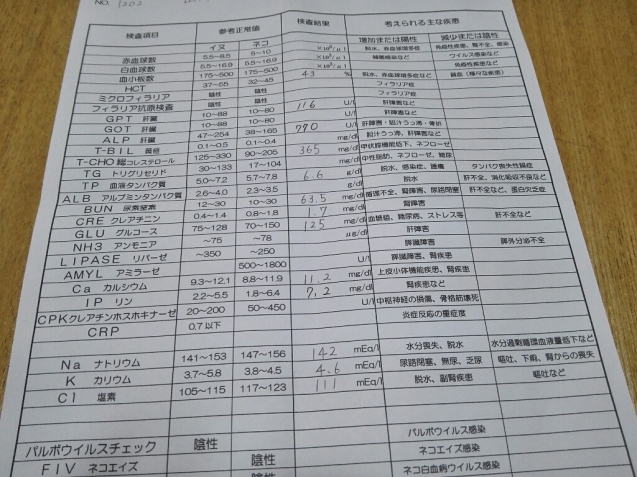 NO. 1202
検査項目 参考正常値 検査結果 考えられる主な疾患
イヌ ネコ 増加または陽性 減少または陰性
赤血球数 5.5~8.5 5~10 ×10⁶/μl 脱水、赤血球増多 免疫性疾患、腎不全、感染
白血球数 5.5~16.9 5.5~16.9 ×10³/μl 細菌感染など ウイルス感染など
血小板数 175~500 175~500 ×10³/μl 免疫性疾患など
HCT 37~65 32~45 43 % 脱水、赤血球増多症など 貧血(様々な疾患)
ミクロフィラリア 陰性 陰性 フィラリア症
フィラリア抗原検査 陰性 陰性 フィラリア症
GPT 肝臓 10~88 10~80 116 U/l 肝障害など
GOT 肝臓 10~88 10~80 U/l 肝障害など
ALP 肝臓 47~254 38~165 770 U/l 肝障害・胆汁うっ滞・骨折
T-BIL 黄疸 0.1~0.5 0.1~0.4 mg/dl 胆汁うっ滞、肝障害など
T-CHO 総コレステロール 125~330 90~205 365 mg/dl 甲状腺機能低下、ネフローゼ
TG トリグリセリド 30~133 17~104 mg/dl 中性脂肪、ネフローゼ、糖尿
TP 血液タンパク質 5.0~7.2 5.7~7.8 6.6 g/dl 脱水、感染症、腫瘍 タンパク喪失性腸症
ALB アルブミンタンパク質 2.6~4.0 2.3~3.5 g/dl 脱水 肝不全、消化吸収不良など
BUN 尿素窒素 12~30 10~30 63.5 mg/dl 循環不全、腎障害、尿路閉塞 肝不全など、蛋白欠乏症
CRE クレアチニン 0.4~1.4 0.8~1.8 1.7 mg/dl 腎障害
GLU グルコース 75~128 70~150 125 mg/dl 血糖値、糖尿病、ストレス等 肝不全など
NH3 アンモニア ~75 ~78 μg/dl 肝障害
LIPASE リパーゼ ~350 ~250 膵臓障害 膵外分泌不全
AMYL アミラーゼ 500~1800 U/l 膵臓障害、腎疾患
Ca カルシウム 9.3~12.1 8.8~11.9 11.2 mg/dl 上皮小体機能疾患、腎疾患
IP リン 2.2~5.5 1.8~6.4 7.2 mg/dl 腎疾患など
CPKクレアチンホスホキナーゼ 20~200 50~450 U/l 中枢神経の損傷、骨格筋壊死
CRP 0.7以下 炎症反応の重症度
Na ナトリウム 141~153 147~156 142 mEq/l 水分喪失、脱水 水分過剰循環血液量低下など
K カリウム 3.7~5.8 3.8~4.5 4.6 mEq/l 尿路閉塞、無尿、乏尿 嘔吐、下痢、腎からの喪失
Cl 塩素 105~115 117~123 111 mEq/l 脱水、副腎疾患 嘔吐など
パルボウイルスチェック 陰性 パルボウイルス感染
FIV ネコエイズ 陰性 ネコエイズ感染
陰性 ネコ白血病ウイルス感染